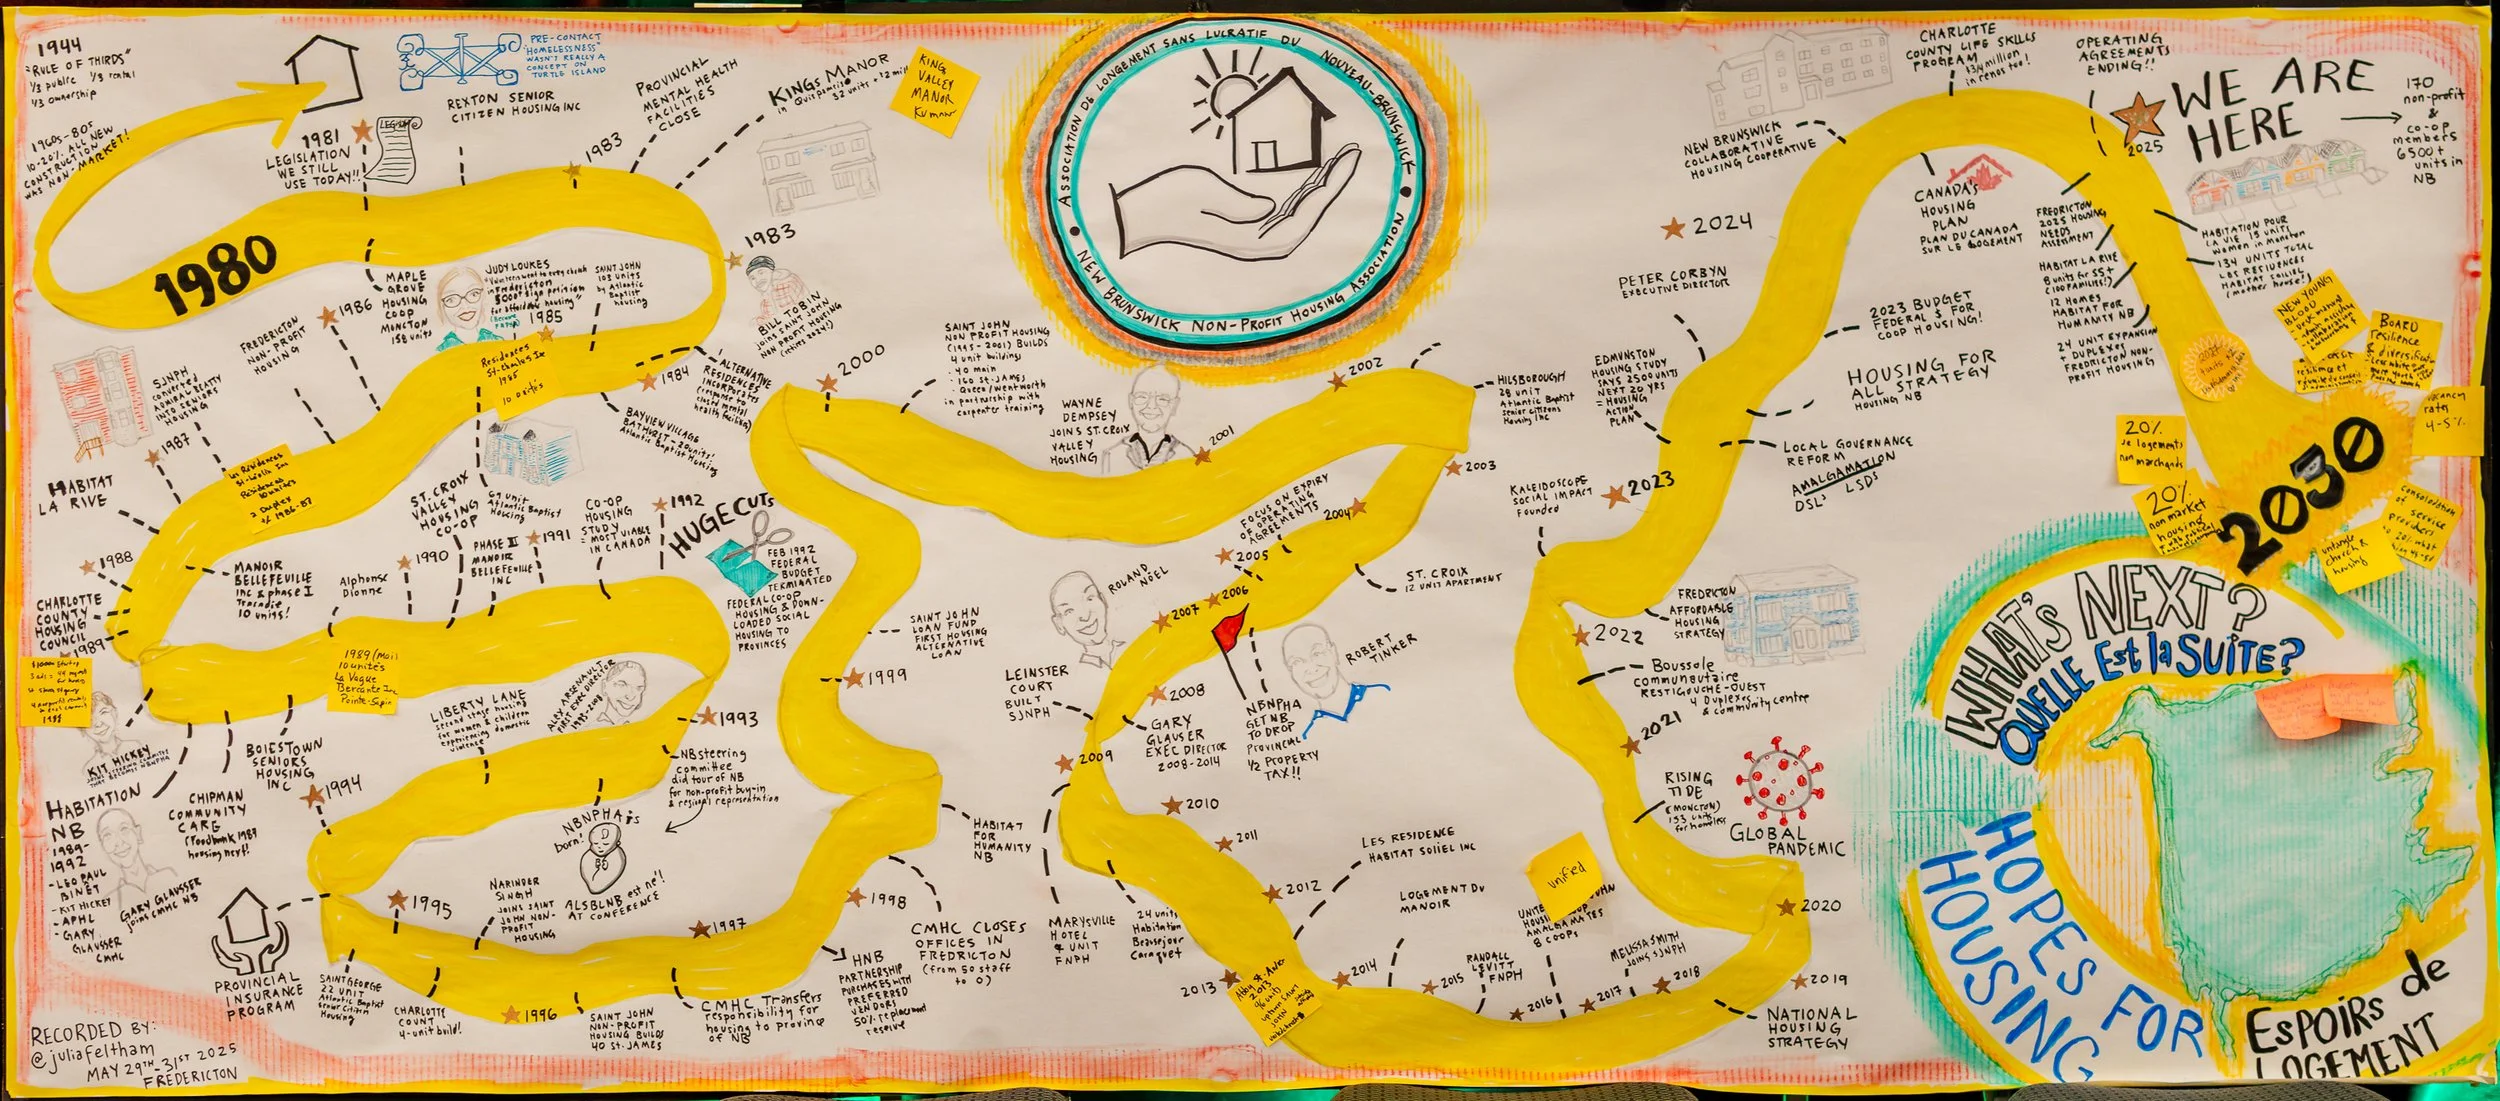 1944
"RULE OF THIRDS"
1/3 public 1/3 rental
1/3 ownership
1960s-80s
10-20% ALL NEW
CONSTRUCTION
WAS NON-MARKET!
PRE-CONTACT
"HOMELESSNESS"
WASN'T REALLY A
CONCEPT ON
TURTLE ISLAND
1980
1981
LEGISLATION
WE STILL
USE TODAY!!
REXTON SENIOR
CITIZEN HOUSING INC
1983
PROVINCIAL
MENTAL HEALTH
FACILITIES
CLOSE
KINGS MANOR
in Quispamsis
32 units
KING
VALLEY
MANOR
1983
BILL TOBIN
JOINS SAINT JOHN
NON PROFIT HOUSING
(retires 2024!)
MAPLE
GROVE
HOUSING
COOP
MONCTON
158 units
JUDY LOUKES
in Fredericton
5000+ sign petition
for affordable housing"
SAINT JOHN
103 units
by Atlantic
Baptist
housing
1984
ALTERNATIVE
RESIDENCES
INCORPORATES
(response to
closed mental
health facilities)
BAYVIEW VILLAGE
BATHURST - 20 units!
Atlantic Baptist Housing
1985
Residences
St-Charles Inc
1985
10 unités
69 unit
Atlantic Baptist
Housing
1986
FREDERICTON
NON-PROFIT
HOUSING
SJNPH
converted
ADMIRAL BEATTY
INTO SENIORS
HOUSING
1987
Les Residences
Residences
10 unités
2 Duplex
1986-87
HABITAT
LA RIVE
1988
MANOIR
BELLEFEUILLE
INC & phase I
Tracadie
10 units!
CHARLOTTE
COUNTY
HOUSING
COUNCIL
1989
1988
KIT HICKEY
HABITATION
NB
1989-
1992
- LEO PAUL
BINÉT
- KIT HICKEY
- APHL
- GARY
GLAUSSER
CMHC
GARY GLAUSSER
joins CMHC NB
CHIPMAN
COMMUNITY
CARE
(Foodbank 1989
housing next!)
BOIESTOWN
SENIORS
HOUSING
INC
Alphonse
Dionne
1989 (Mai)
10 unités
La Vague
Bercante Inc
Pointe-Sapin
1990
ST. CROIX
VALLEY
HOUSING
CO-OP
PHASE II
MANOIR
BELLEFEUILLE
INC
1991
CO-OP
HOUSING
STUDY
= MOST VIABLE
IN CANADA
1992
HUGE CUTS
FEB 1992
FEDERAL
BUDGET
TERMINATED
FEDERAL CO-OP
HOUSING & DOWN-
LOADED SOCIAL
HOUSING TO
PROVINCES
LIBERTY LANE
second stage housing
for women & children
experiencing domestic
violence
ALEX ARSENAULT
FIRST EXEC DIRECTOR
1993-2008
1993
NB steering
committee
did tour of NB
for non-profit buy-in
& regional representation
NBNPHA is
born!
ALSBLNB est né!
AT CONFERENCE
1994
PROVINCIAL
INSURANCE
PROGRAM
1995
SAINT GEORGE
22 UNIT
Atlantic Baptist
Senior Citizen
Housing
CHARLOTTE
COUNT
4-unit build!
NARINDER
SINGH
JOINS SAINT
JOHN NON-
PROFIT
HOUSING
1996
SAINT JOHN
NON-PROFIT
HOUSING BUILDS
40 ST. JAMES
1997
CMHC Transfers
responsibility for
housing to province
of NB
1998
HNB
PARTNERSHIP
PURCHASES WITH
PREFERRED
VENDORS
50% replacement
reserve
CMHC CLOSES
OFFICES IN
FREDRICTON
(from 50 staff
to 0)
HABITAT
FOR
HUMANITY
NB
1999
SAINT JOHN
LOAN FUND
FIRST HOUSING
ALTERNATIVE
LOAN
2000
SAINT JOHN
NON PROFIT HOUSING
(1995-2001) BUILDS
4 unit buildings
- 40 main
- 160 St. James
- Queen/Wentworth
in partnership with
carpenter training
WAYNE
DEMPSEY
JOINS ST. CROIX
VALLEY
HOUSING
2001
2002
HILSBOROUGH
28 unit
Atlantic Baptist
senior citizens
Housing Inc
2003
2004
FOCUS ON EXPIRY
OF OPERATING
AGREEMENTS
2005
ST. CROIX
12 UNIT APARTMENT
2006
ROLAND
NÖEL
2007
NBNPHA
GET NB
TO DROP
PROVINCIAL
1/2 PROPERTY
TAX!!
ROBERT
TINKER
LEINSTER
COURT
BUILT
SJNPH
2008
GARY
GLAUSER
EXEC DIRECTOR
2008-2014
2009
MARYSVILLE
HOTEL
9 UNIT
FNPH
2010
24 units
Habitation
Beausejour
Caraquet
2011
2012
LES RESIDENCE
HABITAT SOLIEL INC
2013
2013
uptown SAINT
JOHN
2014
LOGEMENT DU
MANOIR
2015
RANDALL
LEVITT
FNPH
2016
UNITE
AMALGAMATES
8 COOPs
unified
2017
MELISSA SMITH
JOINS SJNPH
2018
2019
NATIONAL
HOUSING
STRATEGY
2020
GLOBAL
PANDEMIC
RISING
TIDE
(MONCTON)
153 units
for homeless
2021
Boussole
communautaire
RESTIGOUCHE-OUEST
4 Duplexes
& community centre
2022
FREDRICTON
AFFORDABLE
HOUSING
STRATEGY
KALEIDOSCOPE
SOCIAL IMPACT
Founded
2023
EDMUNSTON
HOUSING STUDY
SAYS 2500 UNITS
NEXT 20 YRS
= HOUSING
ACTION
PLAN
LOCAL GOVERNANCE
REFORM
AMALGAMATION
DSLs LSDs
HOUSING FOR
ALL STRATEGY
HOUSING NB
2023 BUDGET
FEDERAL $ FOR
CO-OP HOUSING!
PETER CORBYN
EXECUTIVE DIRECTOR
2024
NEW BRUNSWICK
COLLABORATIVE
HOUSING COOPERATIVE
CHARLOTTE
COUNTY LIFE SKILLS
PROGRAM
in renos too!
CANADA'S
HOUSING
PLAN
PLAN DU CANADA
SUR LE LOGEMENT
OPERATING
AGREEMENTS
ENDING!!
2025
WE ARE
HERE
170
non-profit
&
co-op
members
6500+
units in
NB
FREDRICTON
2025 HOUSING
NEEDS
ASSESSMENT
HABITAT LA RIVE
8 units for 55+
(100 FAMILIES!)
12 HOMES
HABITAT FOR
HUMANITY NB
24 UNIT EXPANSION
+ DUPLEXES
FREDRICTON NON-
PROFIT HOUSING
HABITATION POUR
LA VIE 15 units
women in Moncton
134 UNITS TOTAL
LES RESIDENCES
HABITAT SOLIEL
(mother house!)
NEW YOUNG
BLOOD
BOARD
resilience
& diversification
vacancy
rates
4-5%
20%
de logements
non marchands
20%
non market
housing
consolidation
of
service
providers
untangle
church &
housing
2030
WHAT'S NEXT?
QUELLE EST la SUITE?
HOPES FOR
HOUSING
ESPOIRS de
LOGEMENT
ASSOCIATION DE LOGEMENT SANS LUCRATIF DU NOUVEAU-BRUNSWICK
NEW BRUNSWICK NON-PROFIT HOUSING ASSOCIATION
RECORDED BY:
@juliafeltham
MAY 29TH-31ST 2025
FREDERICTON